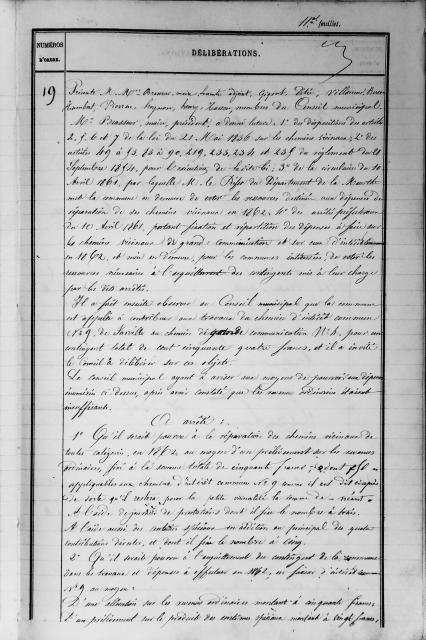 11e feuillet.
NUMÉROS D'ORDRE.
DÉLIBÉRATIONS.
19
Présents M. Mrs maire, adjoint, Gigout, Didié, Villaume,
Lambert, Pierron, membres du Conseil municipal.
Mr Brasseur, maire, président, a donné lecture, 1° des dispositions des articles
2, 5, 6 et 7 de la loi du 21 Mai 1836 sur les chemins vicinaux; 2° des
articles 49 à 53, 83 à 90, 219, 233, 234 et 235 du règlement du 21
Septembre 1854, pour l'exécution de la dite loi; 3° de la circulaire du 10
Avril 1861, par laquelle M. le Préfet du Département de la Meurthe
met la commune en demeure de voter les ressources destinées aux dépenses de
réparation de ses chemins vicinaux en 1862, 4° des arrêtés préfectoraux
du 10 Avril 1861, portant fixation et répartition des dépenses à faire sur
les chemins vicinaux de grande communication et sur ceux d'intérêt commun
en 1862, et mise en demeure, pour les communes intéressées, de voter les
ressources nécessaires à l'acquittement des contingents mis à leur charge
par les dits arrêtés.
Il a fait ensuite observer au Conseil municipal que la commune
est appelée à contribuer aux travaux du chemin d'intérêt commun
N° 9, de au chemin de grande communication N° 4, pour un
contingent total de cent cinquante quatre francs, et il a invité
le Conseil à délibérer sur ces objets.
Le Conseil municipal ayant à aviser aux moyens de pourvoir aux dépenses
énumérées ci-dessus, après avoir constaté que les revenus ordinaires étaient
insuffisants.
A arrêté:
1° Qu'il serait pourvu à la réparation des chemins vicinaux de
toutes catégories, en 1862, au moyen d'un prélèvement sur les revenus
ordinaires, fixé à la somme totale de cinquante francs, dont 50
applicables aux chemins d'intérêt commun N° 9
de sorte qu'il restera pour la petite vicinalité la somme de néant.
A l'aide de journées de prestations dont il fixe le nombre à trois.
A l'aide aussi des centimes spéciaux en addition au principal des quatre
contributions directes, et dont il fixe le nombre à cinq.
2° Qu'il serait pourvu à l'acquittement du contingent de la commune
dans les travaux et dépenses à effectuer en 1862, en faveur d'intérêt commun
N° 9 au moyen:
D'une allocation sur les revenus ordinaires montant à cinquante francs,
D'un prélèvement sur le produit des centimes spéciaux montant à vingt francs,